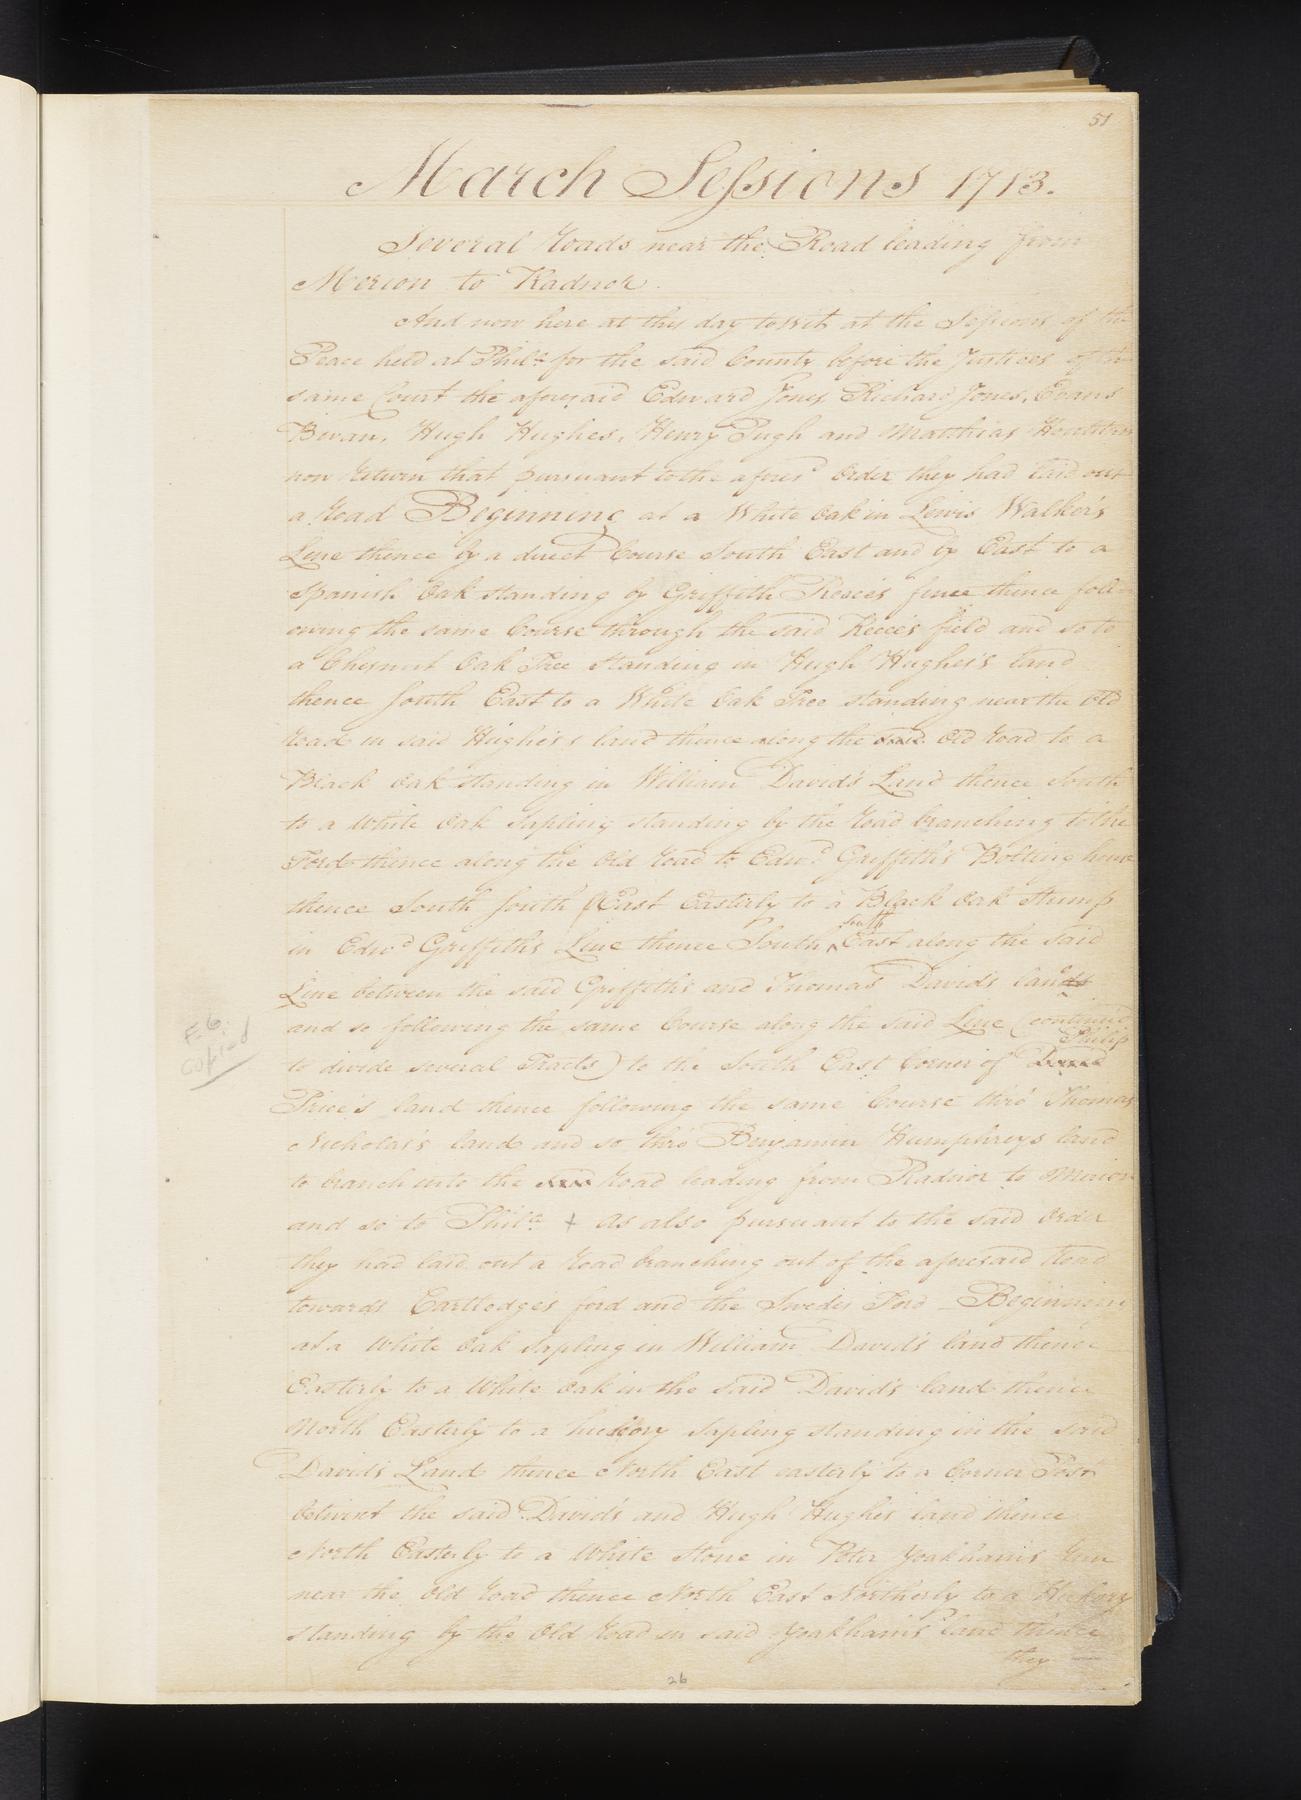 51
March Sessions 1713.
Several Roads near the Road leading from
Merion to Radnor.
And now here at this day towit at the Sessions of the
Peace held at Phila. for the said County before the Justices of the
same Court the aforesaid Edward Jones Richard Jones, Evans
Bivan, Hugh Hughes, Henry Pugh and Matthias
now return that pursuant to the afores.d Order they had laid out
a Road Beginning at a White Oak in Lewis Walker's
Line thence by a direct Course South East and by East to a
Spanish Oak standing by Griffith Reece's fence thence foll-
owing the same Course through the said Reece's field and so to
a Chesnut Oak Tree standing in Hugh Hughes's land
thence South East to a White Oak Tree standing near the old
road in said Hughes's land thence along the said Old road to a
Black Oak standing in William David's Land thence South
to a White Oak Sapling standing by the road branching to the
Ford thence along the Old road to Edw.d Griffith's Bolting house
thence South South East Easterly to a Black Oak Stump
in Edw.d Griffith's Line thence South south East along the said
Line between the said Griffith's and Thomas David's land
and so following the same Course along the said Line (continued
to divide several Tracts) to the South East Corner of Philip
Price's land thence following the same Course thro' Thomas
Nicholas's land and so thro' Benjamin Humphreys land
to branch into the road leading from Radnor to Merion
and so to Phila. + As also pursuant to the said Order
they had laid out a road branching out of the aforesaid Road
towards Cartledge's ford and the Swedes Ford - Beginning
at a White Oak Sapling in William David's land thence
Easterly to a White Oak in the said David's land thence
North Easterly to a hickory Sapling standing in the said
David's Land thence North East easterly to a Corner Post
betwixt the said David's and Hugh Hughes land thence
North Easterly to a White Stone in Peter Yoakham's
near the Old road thence North East Northerly to a Hickory
standing by the Old road in said Yoakham's land thence
they
F. 6.
copied
26